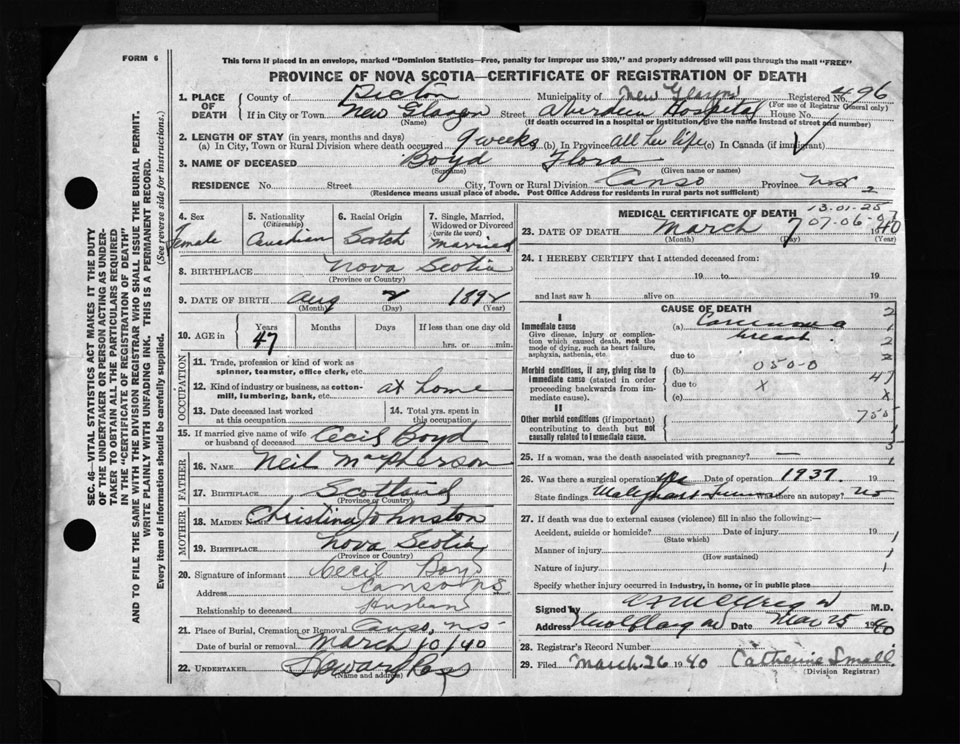 FORM 6
This form if placed in an envelope, marked "Dominion Statistics—Free, penalty for improper use $300," and properly addressed will pass through the mail "FREE"
PROVINCE OF NOVA SCOTIA—CERTIFICATE OF REGISTRATION OF DEATH
SEC. 46—VITAL STATISTICS ACT MAKES IT THE DUTY
OF THE UNDERTAKER OR PERSON ACTING AS UNDER-
TAKER TO OBTAIN ALL THE PARTICULARS REQUIRED
IN THE "CERTIFICATE OF REGISTRATION OF DEATH"
AND TO FILE THE SAME WITH THE DIVISION REGISTRAR WHO SHALL ISSUE THE BURIAL PERMIT.
WRITE PLAINLY WITH UNFADING INK. THIS IS A PERMANENT RECORD.
Every item of information should be carefully supplied. (See reverse side for instructions.)
1. PLACE OF DEATH County of Pictou Municipality of New Glasgow Registered No. 496
(For use of Registrar General only)
If in City or Town New Glasgow Street Aberdeen Hospital House No.
(Name) (If death occurred in a hospital or institution, give the name instead of street and number)
2. LENGTH OF STAY (in years, months and days)
(a) In City, Town or Rural Division where death occurred 9 weeks (b) In Province all her life (c) In Canada (if immigrant)
3. NAME OF DECEASED Boyd Flora
(Surname) (Given name or names)
RESIDENCE No. Street City, Town or Rural Division Canso Province N.S. 2
(Residence means usual place of abode. Post Office Address for residents in rural parts not sufficient)
4. Sex Female
5. Nationality (Citizenship) Canadian
6. Racial Origin Scotch
7. Single, Married, Widowed or Divorced (write the word) Married
8. BIRTHPLACE Nova Scotia
(Province or Country)
9. DATE OF BIRTH Aug 2 1892
(Month) (Day) (Year)
10. AGE in Years 47 Months Days If less than one day old
hrs. or min.
OCCUPATION
11. Trade, profession or kind of work as spinner, teamster, office clerk, etc.
12. Kind of industry or business, as cotton-mill, lumbering, bank, etc. at home
13. Date deceased last worked at this occupation
14. Total yrs. spent in this occupation
15. If married give name of wife or husband of deceased Cecil Boyd
FATHER
16. NAME Neil MacPherson
17. BIRTHPLACE Scotland
(Province or Country)
MOTHER
18. MAIDEN NAME Christina Johnston
19. BIRTHPLACE Nova Scotia
(Province or Country)
20. Signature of informant Cecil Boyd
Address Canso N.S.
Relationship to deceased Husband
21. Place of Burial, Cremation or Removal Canso, N.S.
Date of burial or removal March 10/40
22. UNDERTAKER Howard Ross
(Name and address)
MEDICAL CERTIFICATE OF DEATH 13-01-25
07-06-
23. DATE OF DEATH March 7 1940
(Month) (Day) (Year)
24. I HEREBY CERTIFY that I attended deceased from:
19 to 19
and last saw h alive on 19
CAUSE OF DEATH
I
Immediate cause (a) Carcinoma breast
Give disease, injury or complication which caused death, not the mode of dying, such as heart failure, asphyxia, asthenia, etc.
due to
Morbid conditions, if any, giving rise to immediate cause (stated in order proceeding backwards from immediate cause). (b) 050-0
due to X
(c)
II
Other morbid conditions (if important) contributing to death but not causally related to immediate cause.
25. If a woman, was the death associated with pregnancy? —
26. Was there a surgical operation? Yes Date of operation 1937.
State findings Malignant Tumor Was there an autopsy? no
27. If death was due to external causes (violence) fill in also the following:—
Accident, suicide or homicide? Date of injury 19
(State which)
Manner of injury
(How sustained)
Nature of injury
Specify whether injury occurred in industry, in home, or in public place
Signed by M.D.
Address New Glasgow Date Mar 25 1940
28. Registrar's Record Number
29. Filed March 26 1940 Catherine Small
(Division Registrar)